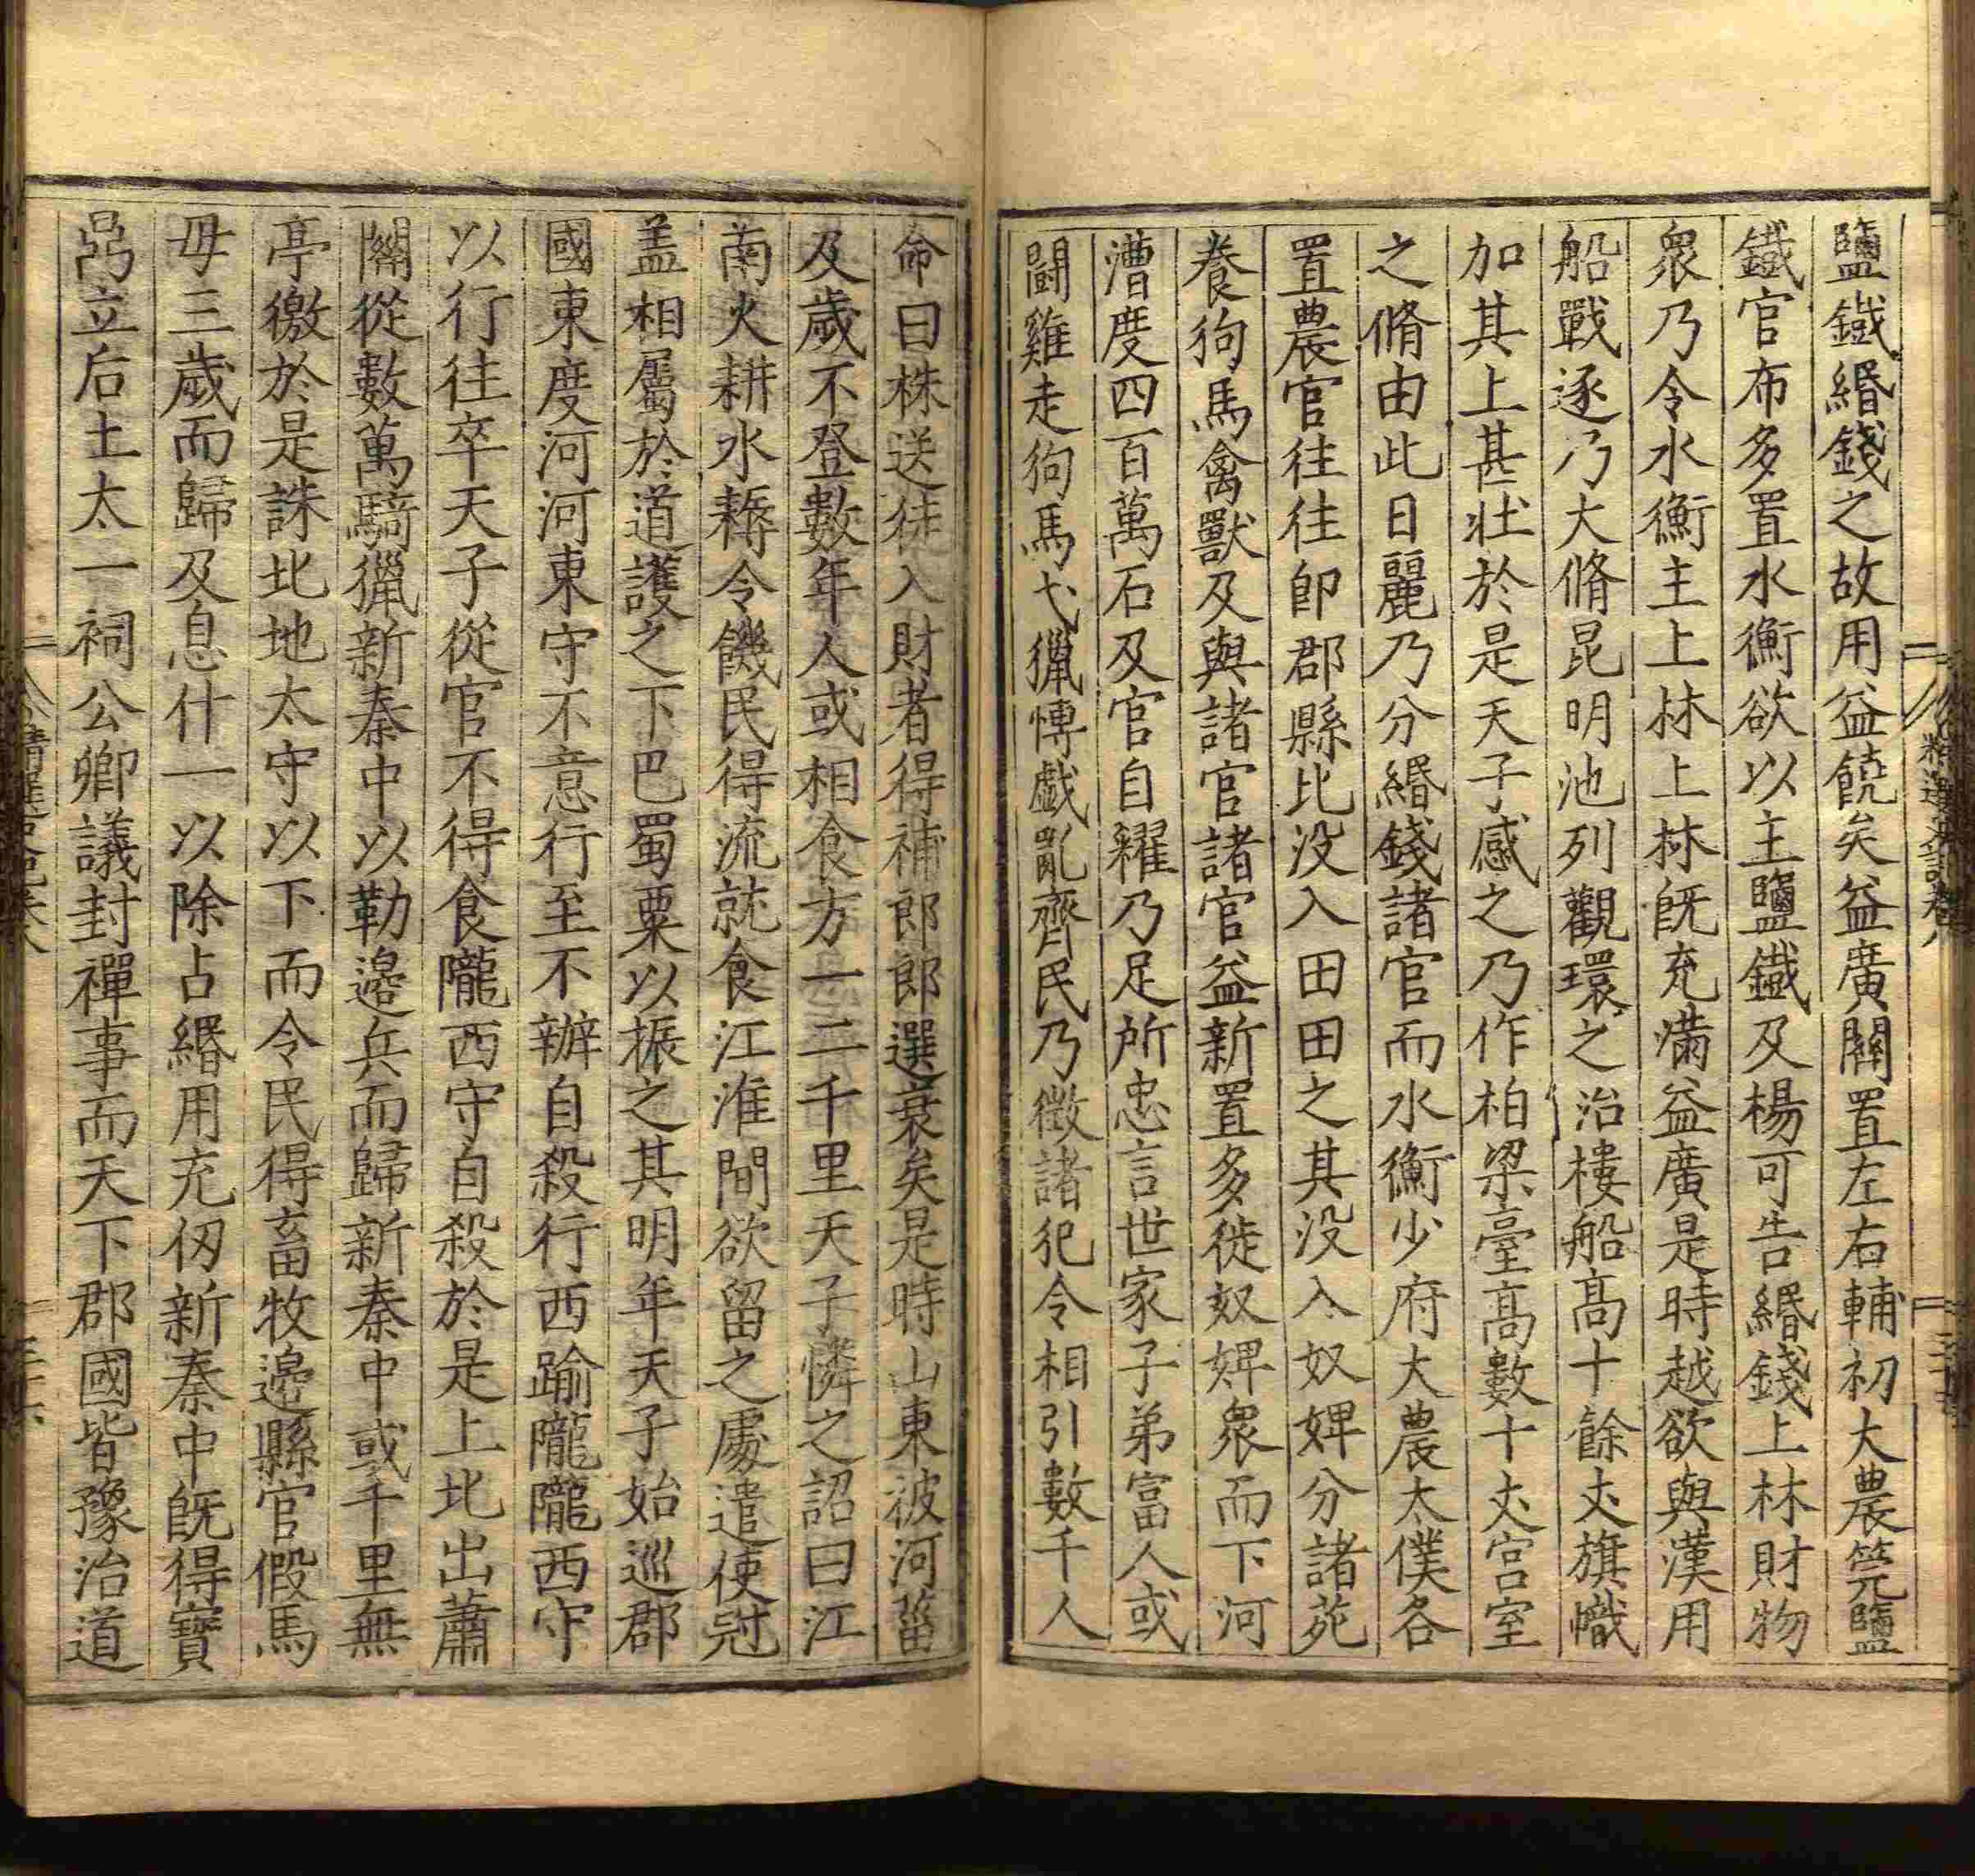 鹽鐵緡錢之故用益饒矣益廣關置左右輔初大農筦鹽
鐵官布多置水衡欲以主鹽鐵及楊可告緡錢上林財物
衆乃令水衡主上林上林旣充滿益廣是時越欲與漢用
船戰逐乃大脩昆明池列觀環之治樓船高十餘丈旗幟
加其上甚壯於是天子感之乃作柏梁臺高數十丈宮室
之脩由此日麗乃分緡錢諸官而水衡少府大農太僕各
置農官往往卽郡縣比没入田田之其没入奴婢分諸苑
養狗馬禽獸及與諸官諸官益新置多徙奴婢衆而下河
漕度四百萬石及官自糴乃足所忠言世家子弟富人或
鬪雞走狗馬弋獵博戲亂齊民乃徵諸犯令相引數千人
命曰株送徒入財者得補郎郎選衰矣是時山東被河菑
及歲不登數年人或相食方一二千里天子憐之詔曰江
南火耕水耨令饑民得流就食江淮間欲留之處遣使冠
盖相屬於道護之下巴蜀粟以振之其明年天子始巡郡
國東度河河東守不意行至不辦自殺行西踰隴隴西守
以行往卒天子從官不得食隴西守自殺於是上北出蕭
關從數萬騎獵新秦中以勒邉兵而歸新秦中或千里無
亭徼於是誅北地太守以下而令民得畜牧邉縣官假馬
母三歲而歸及息什一以除占緡用充仞新秦中旣得寶
鼎立后土太一祠公卿議封禪事而天下郡國皆豫治道